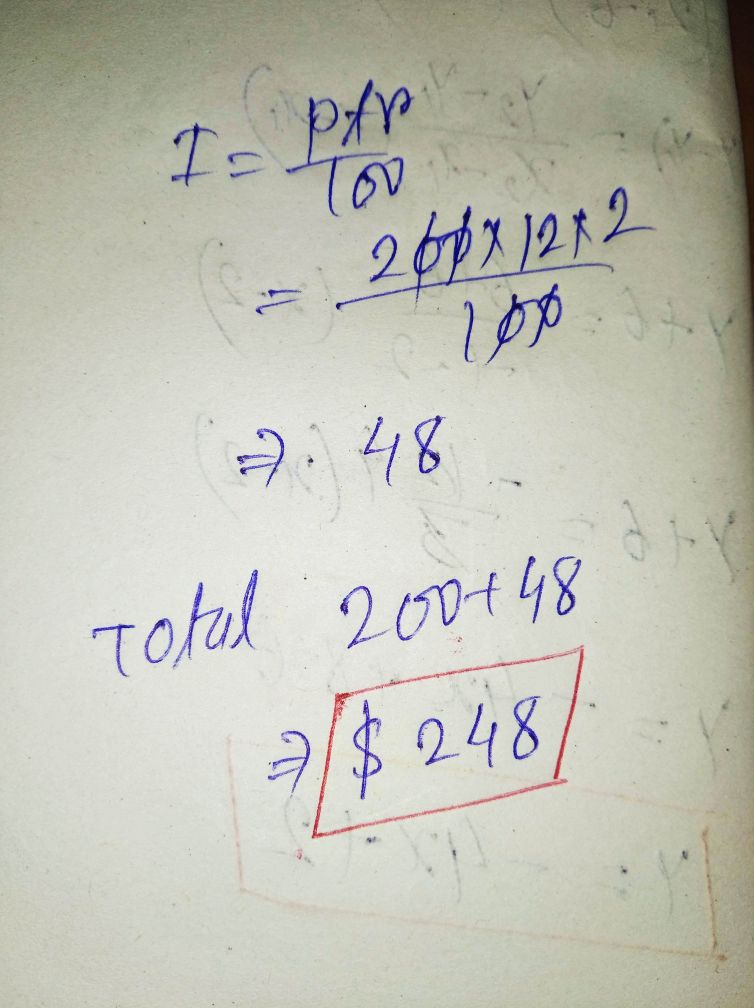 I = ptr/100
= 200 x 12 x 2/100
⇒ 48
Total 200+48
⇒ $ 248